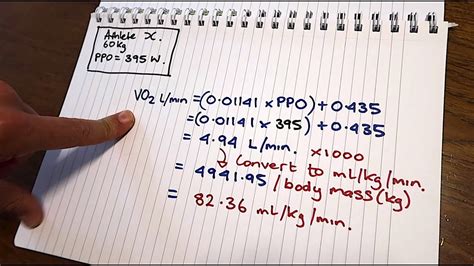 Athlete X.
60kg
PPO = 395 W.
VO2 L/min = (0.01141 x PPO) + 0.435
= (0.01141 x 395) + 0.435
= 4.94 L/min. x1000
↳ Convert to mL/kg/min.
= 4941.95 / body mass (kg)
= 82.36 mL/kg/min.